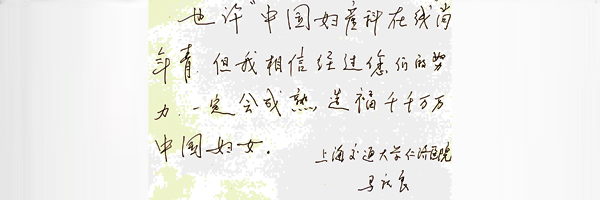 也许"中国妇产科在线"尚
年青，但我相信经过您们的努
力，一定会成熟，造福千千万万
中国妇女。
上海交通大学仁济医院